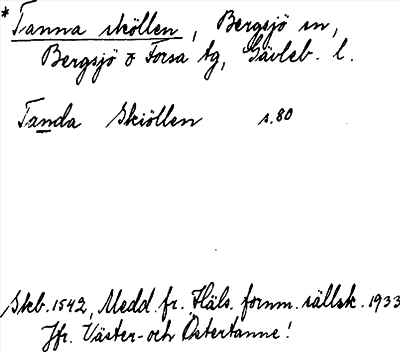 * Tanna sköllen, Bergsjö sn,
Bergsjö o Forsa tg, Gävleb. l.
Tanda Skiöllen s. 80
Skb. 1542, Medd. fr. Häls. fornm. sällsk. 1933
Jfr. Väster- och Östertanne!